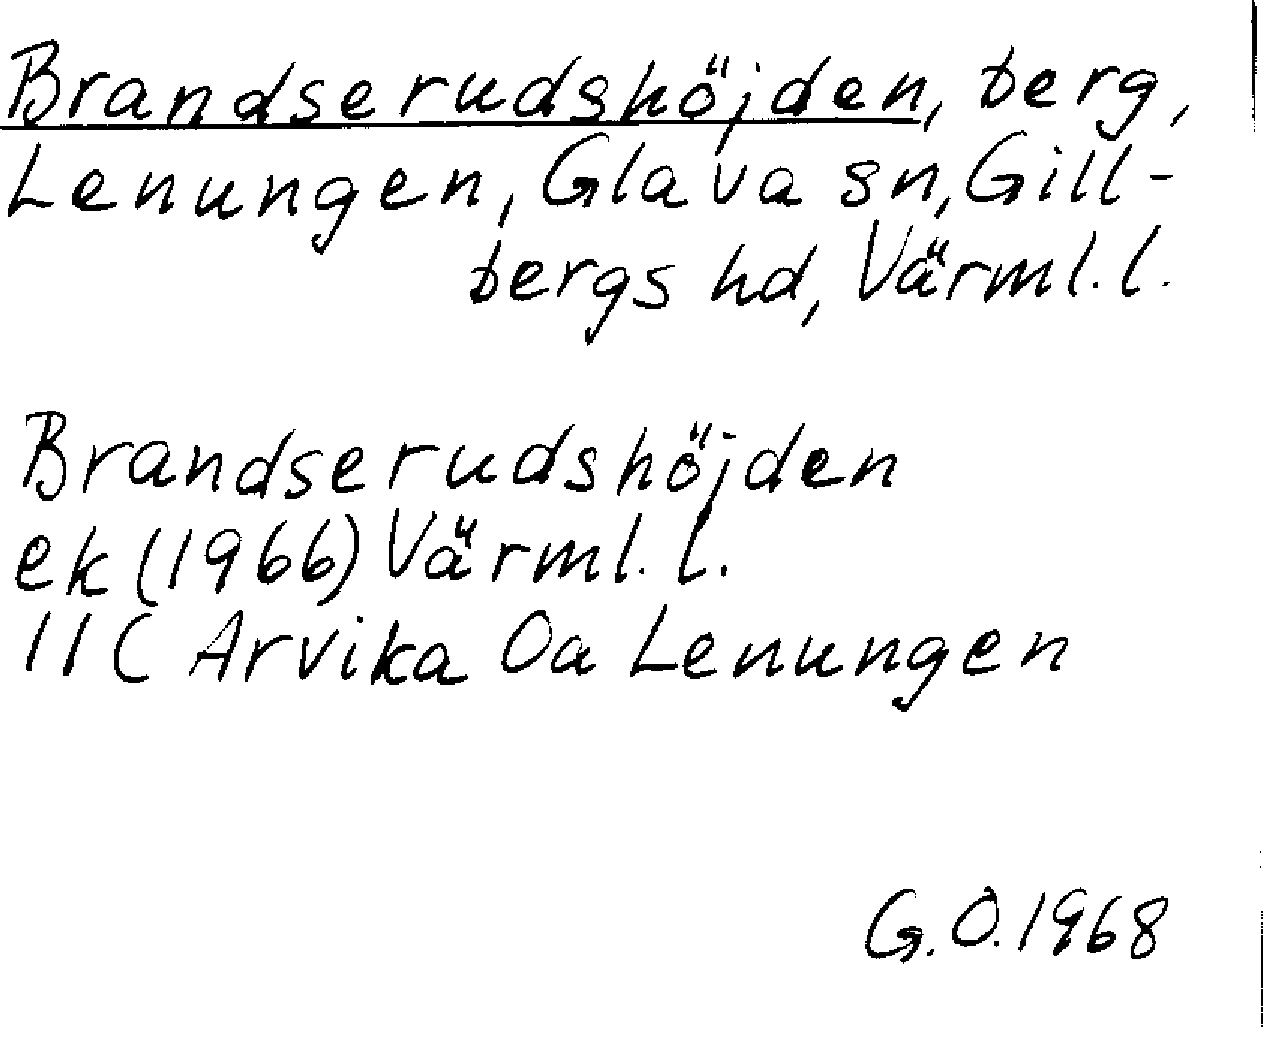 Brandserudshöjden, berg,
Lenungen, Glava sn, Gill-
bergs hd, Värml. l.
Brandserudshöjden
ek (1966) Värml. l.
11C Arvika 0a Lenungen
G.O. 1968